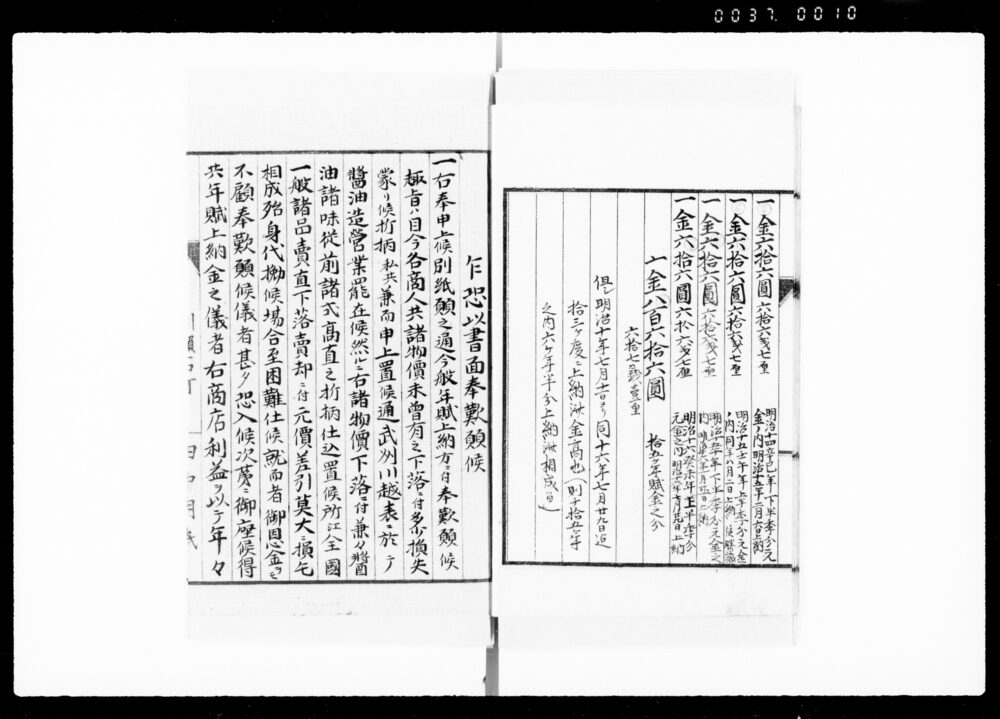 0037 0010
一金六拾六圓 六拾六戔七重 明治十四辛巳年下半季分元
金ノ内明治十五年二月六日上納
一金六拾六圓 六拾六戔七重 明治十五壬午年上半季分元金
一金六拾六圓 六拾六戔七重 明治十五年下半季分元金之
一金六拾六圓 六拾六戔七重 明治十六癸未年上半季分
元金之内明治十六年七月廿九日上納
一金八百六拾六圓 拾五ヶ年賦金之分
六拾七戔壹重
但シ明治十年七月十日ヨリ同十六年七月廿九日迠
拾三ヶ度ニ上納済金高也(則チ拾五ヶ年
之内六ヶ年半分上納済相成自)
乍恐以書面奉歎願候
一右奉申上候別紙願之通今般年賦上納方ニ付奉歎願候
趣旨ハ目今各商人共諸物價未曾有之下落ニ付多ク損失
蒙リ候折柄私共兼而申上置候通武州川越表ニ於テ
醬油造營業罷在候然ルニ右諸物價下落ニ付兼々醬
油諸味從前諸式高直之折柄仕込置候所江全國
一般諸品賣直下落賣却ニ付元價差引莫大ニ損毛
相成殆身代拗候場合至困難仕候就而者御恩金ヲモ
不顧奉歎願候儀者甚タ恐入候次第ニ御座候得
共年賦上納金之儀者右商店利益ヲ以テ年々